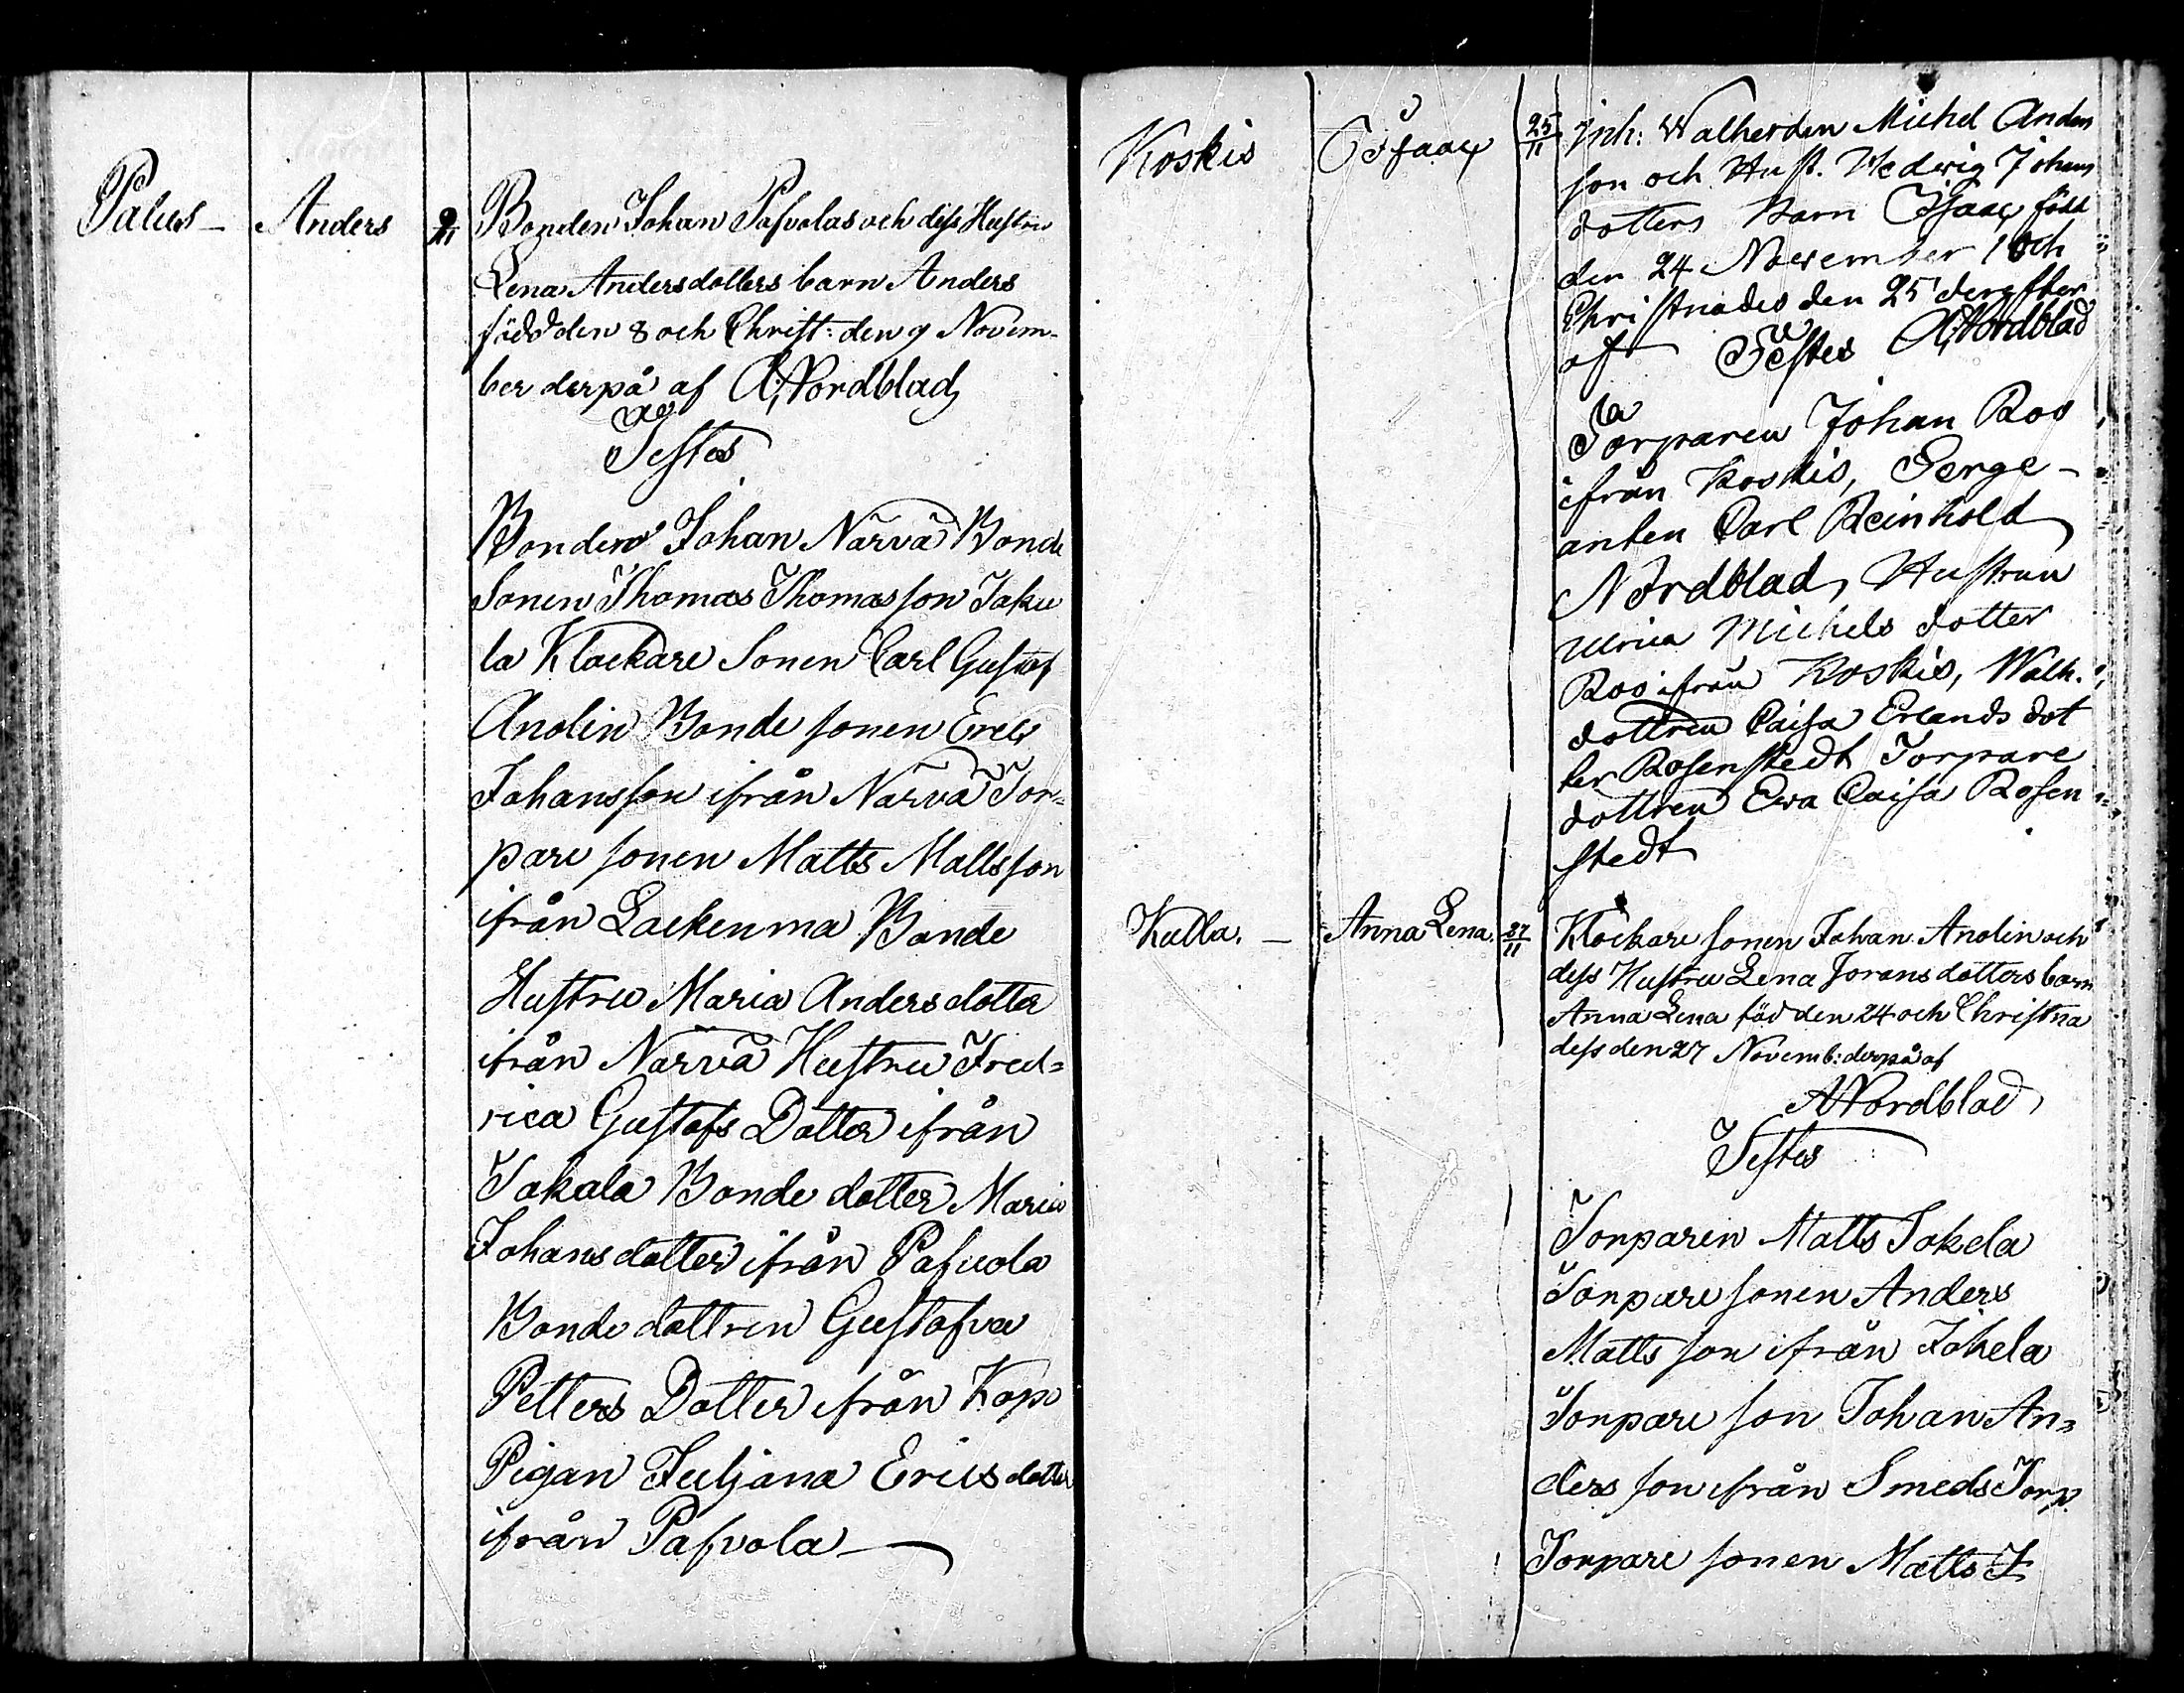 Palus — Anders 9/11 Bonden Johan Pafvolas och dess Hustru
Lena Andersdotters barn Anders
född den 8 och Christ: den 9 Novem-
ber derpå af A. Nordblad
Testes
Bonden Johan Närvä Bonde
Sonen Thomas Thomasson Jaku
la Klockare Sonen Carl Gustaf
Anolin Bonde sonen Eric
Johansson ifrån Närvä Tor=
pare sonen Matts Mattsson
ifrån Laekenma Bonde
Hustru Maria Andersdotter
ifrån Närvä Hustru Fred=
rica Gustafs Dotter ifrån
Jakala Bonde dotter Maria
Johansdotter ifrån Pafvola
Bonde dottren Gustafva
Petters Dotter ifrån Kops
Pigan Juljana Ericsdotter
ifrån Pafvola —
Koskis Isaac 25/11 Inh: Walherden Michel Anders
son och Hust. Hedvig Johans
dotters Barn Isaac född
den 24 November och
Christnades den 25 derefter
af Testes A. Nordblad
Torparen Johan Roo
ifrån Koskis, Serge-
anten Carl Reinhold
Nordblad, Hustrun
Ulrica Michels dotter
Roo ifrån Koskis, Walh.
dottren Caisa Erlands dot
ter Rosenstedt Torpare
dottren Ewa Caisa Rosen
stedt
Kulla. — Anna Lena. 27/11 Klockare sonen Johan Anolin och
dess Hustru Lena Joransdotters barn
Anna Lena föd den 24 och Christna
des den 27 Novemb: derpå af
A Nordblad
Testes
Torparen Matts Jokela
Torpare sonen Anders
Matts son ifrån Jokela
Torpare son Johan An=
ders son ifrån Smeds Torp
Torpare sonen Matts J